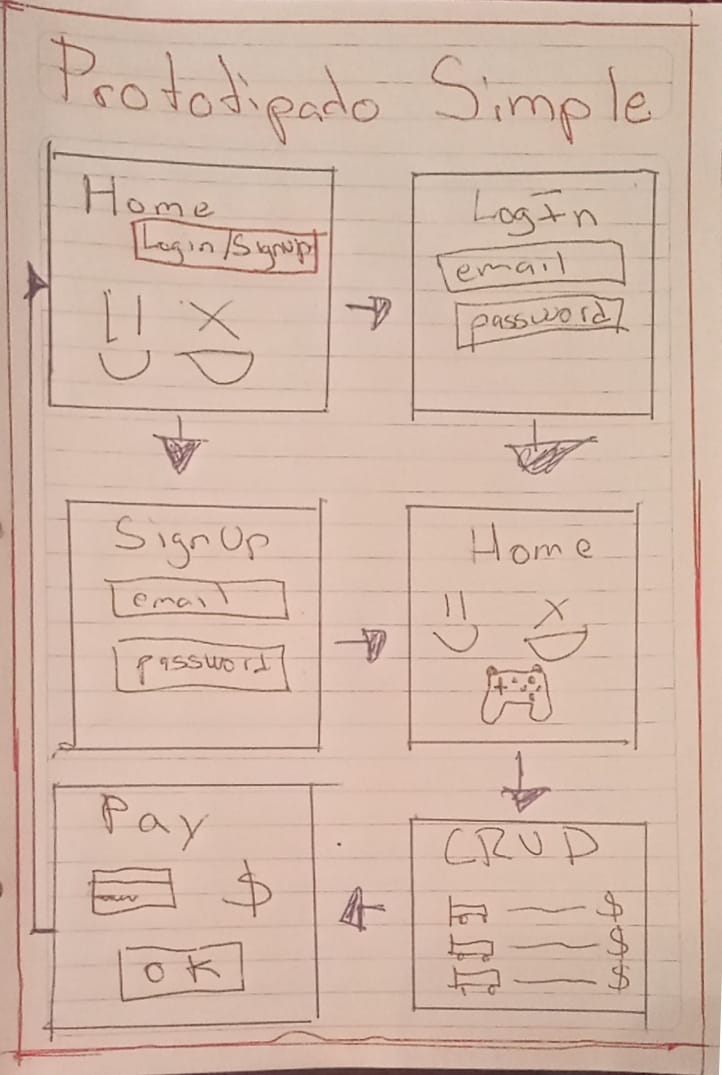 Prototipado Simple
Home
Login/SignUp
LogIn
email
password
SignUp
email
password
Home
Pay
$
OK
CRUD
$
$
$